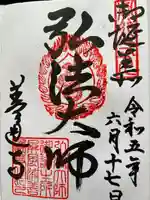 御誕生所
令和五年
六月十七日
弘法大師
善通寺